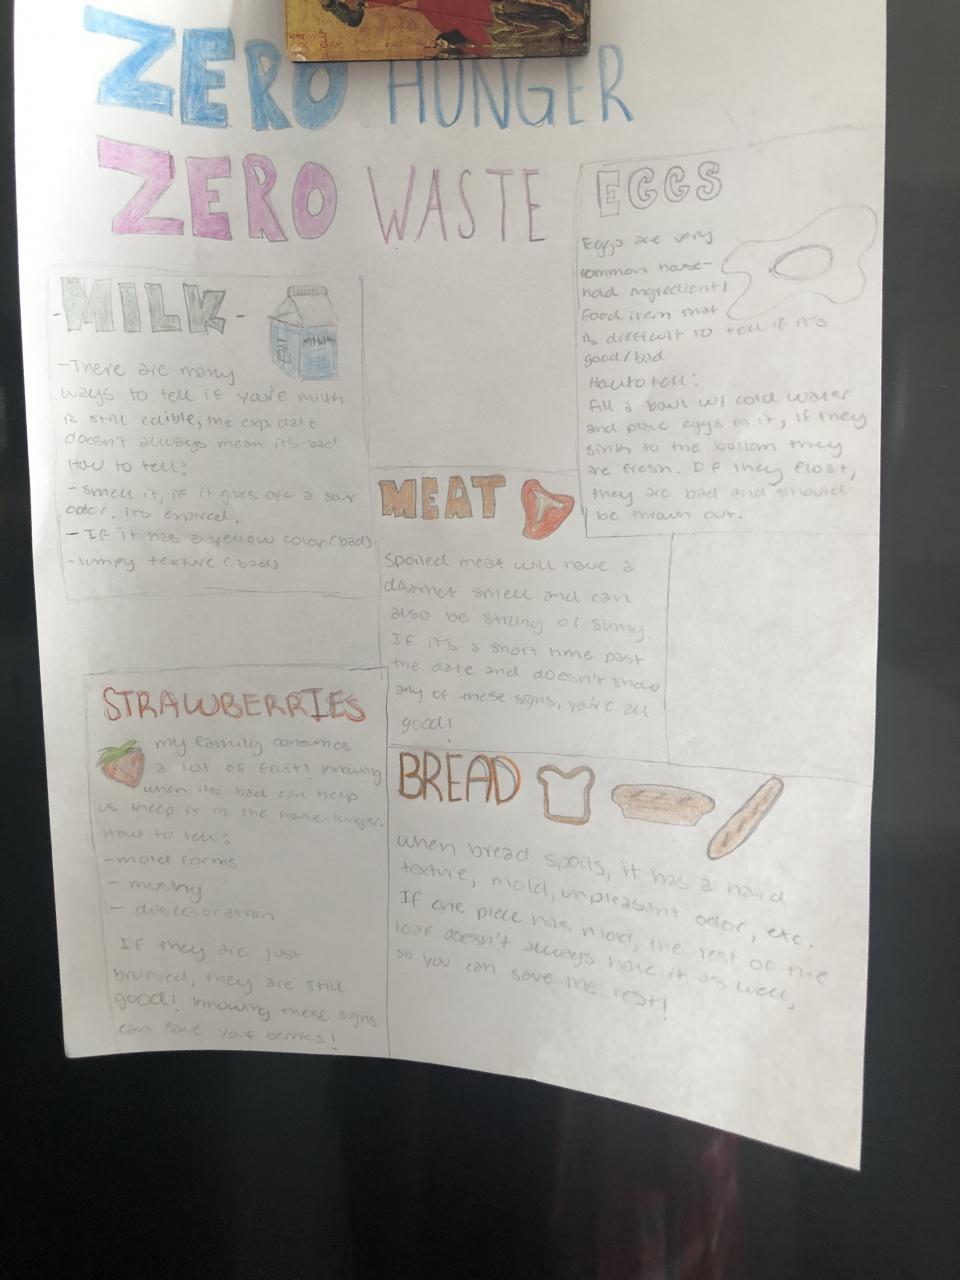 ZERO HUNGER
ZERO WASTE
EGGS
Eggs are very
common house-
hold ingredient!
Food item that
is difficult to tell if it's
good/bad
How to tell:
fill a bowl w/ cold water
and place eggs in it, if they
sink to the bottom they
are fresh. If they float,
they are bad and should
be thrown out.
-MILK-
MILK
-There are many
ways to tell if you're milk
is still edible, the exp date
doesn't always mean its bad
How to tell:
-smell it, if it gives off a sour
odor. its expired.
-If it has a yellow color (bad)
-lumpy texture (bad)
MEAT
Spoiled meat will have a
distinct smell and can
also be sticky or slimy.
If it's a short time past
the date and doesn't show
any of these signs, you're all
good!
STRAWBERRIES
my family consumes
a lot of fruit! knowing
when its bad can help
us keep it in the house longer.
How to tell:
-mold forms
- mushy
- discoloration
If they are just
bruised, they are still
good! knowing these signs
can save your berries!
BREAD
when bread spoils, it has a hard
texture, mold, unpleasant odor, etc.
If one piece has mold, the rest of the
loaf doesn't always have it as well,
so you can save the rest!